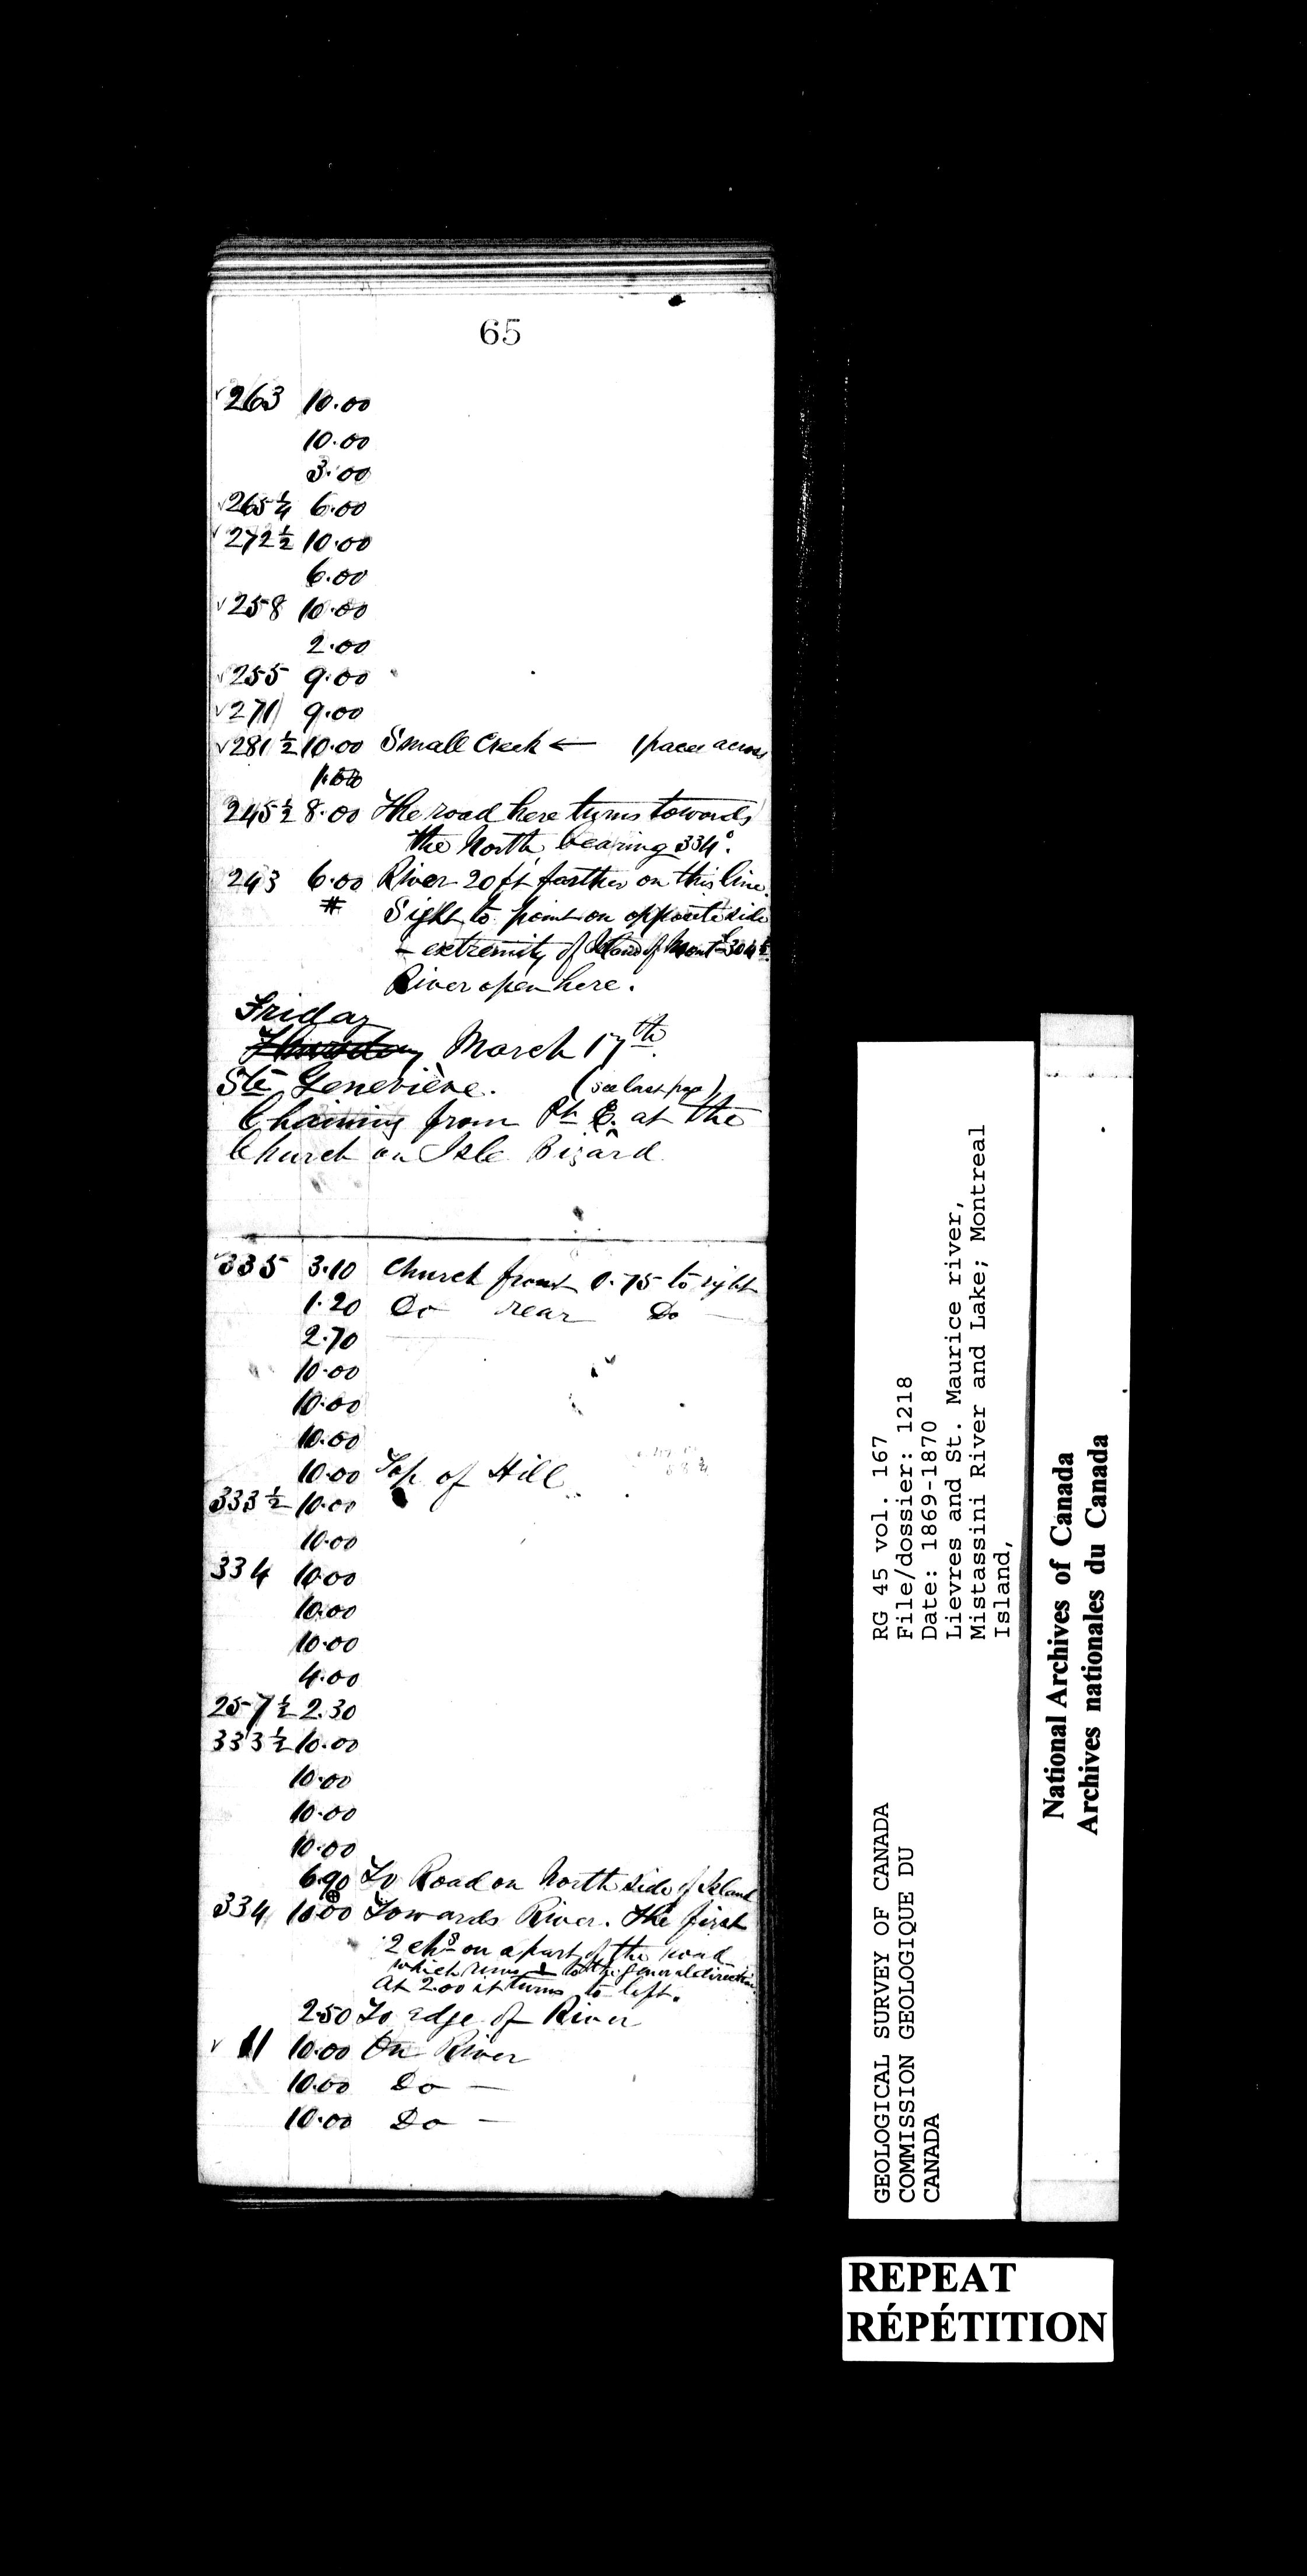 65
263 10.00
10.00
3.00
265 1/4 6.00
272 1/2 10.00
6.00
258 10.00
2.00
255 9.00
271 9.00
281 1/2 10.00 Small Creek ← 1 pace across
1.00
245 1/2 8.00 The road here turns towards
the North, bearing 334°.
243 6.00 River 20 ft farther on this line.
# Sight to point on opposite side
- extremity of Island of Mont 304 1/2
River open here.
Friday
Thursday March 17th
Ste Geneviève. (see last page)
Chaining from Pt E. at the
Church on Isle Bizard
335 3.10 Church front 0.75 to right
1.20 Do rear Do —
2.70
10.00
10.00
10.00
10.00 Top of Hill
333 1/2 10.00
10.00
334 10.00
10.00
10.00
4.00
257 1/2 2.30
333 1/2 10.00
10.00
10.00
10.00
6.90 To Road on North side of Island
334 10.00 Towards River. The first
2 chs on a part of the road
which runs ⊥ to the general direction.
At 2.00 it turns to left.
2.50 To edge of River
11 10.00 On River
10.00 Do —
10.00 Do —
GEOLOGICAL SURVEY OF CANADA
COMMISSION GEOLOGIQUE DU
CANADA
RG 45 vol. 167
File/dossier: 1218
Date: 1869-1870
Lievres and St. Maurice river,
Mistassini River and Lake; Montreal
Island,
National Archives of Canada
Archives nationales du Canada
REPEAT
RÉPÉTITION